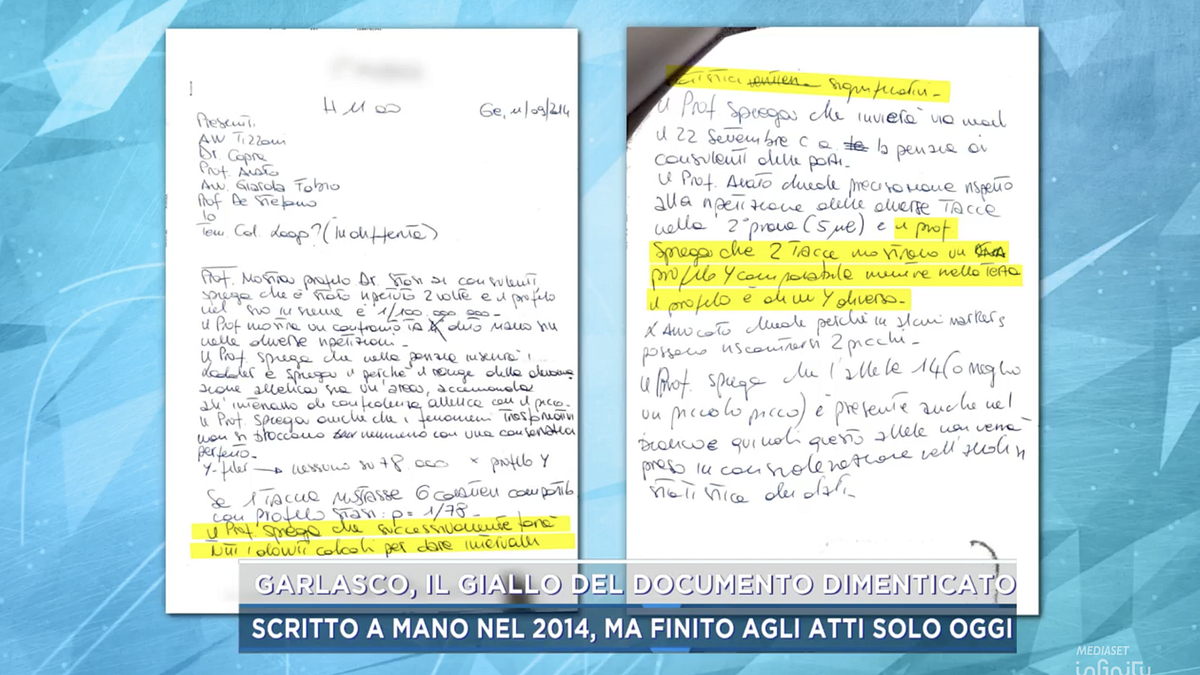 H 11 00
Ge, 11/09/2014
Presenti
Avv Tizzoni
Dr. Capra
Prof. Avato
Avv. Giarda Fabio
Prof De Stefano
Io
Ten. Col. ? (in differita)
Prof. Mostra profilo Dr. Stasi ai consulenti
spiega che è stato ripetuto 2 volte e il profilo
nel suo insieme è 1/100.000.000.-
Il Prof mostra un confronto mano su
nelle diverse ripetizioni.-
Il Prof. Spiega che nella perizia inserirà i
ladder e spiega il perché il range della
allelica sia un'area,
all'interno di confidenza allelica con il picco.-
Il Prof. Spiega anche che i fenomeni
non si bloccano nemmeno con una
perfetta.-
Y-filer → nessuno su 78.000 x profilo Y
Se 1 Tacca mostrasse 6 compatib
con profilo Stasi: p = 1/78.-
Il Prof. Spiega che successivamente farà
tutti i dovuti calcoli per dare intervalli
statistici significativi.-
Il Prof Spiega che invierà via mail
il 22 Settembre c.a. la perizia ai
consulenti delle parti.-
Il Prof. Avato chiede precisazione rispetto
alla ripetizione delle diverse Tacce
nella 2° prova (5 µl) e il prof
Spiega che 2 Tacce mostrano un
profilo Y comparabile mentre nella terza
il profilo è di un Y diverso.-
L'Avvocato chiede perché in alcuni markers
possono riscontrarsi 2 picchi.-
Il Prof. Spiega che l'allele 14 (o meglio
un piccolo picco) è presente anche nel
bianco e quindi questo allele non verrà
preso in considerazione nell'analisi
statistica dei dati.-
GARLASCO, IL GIALLO DEL DOCUMENTO DIMENTICATO
SCRITTO A MANO NEL 2014, MA FINITO AGLI ATTI SOLO OGGI
MEDIASET
infinity